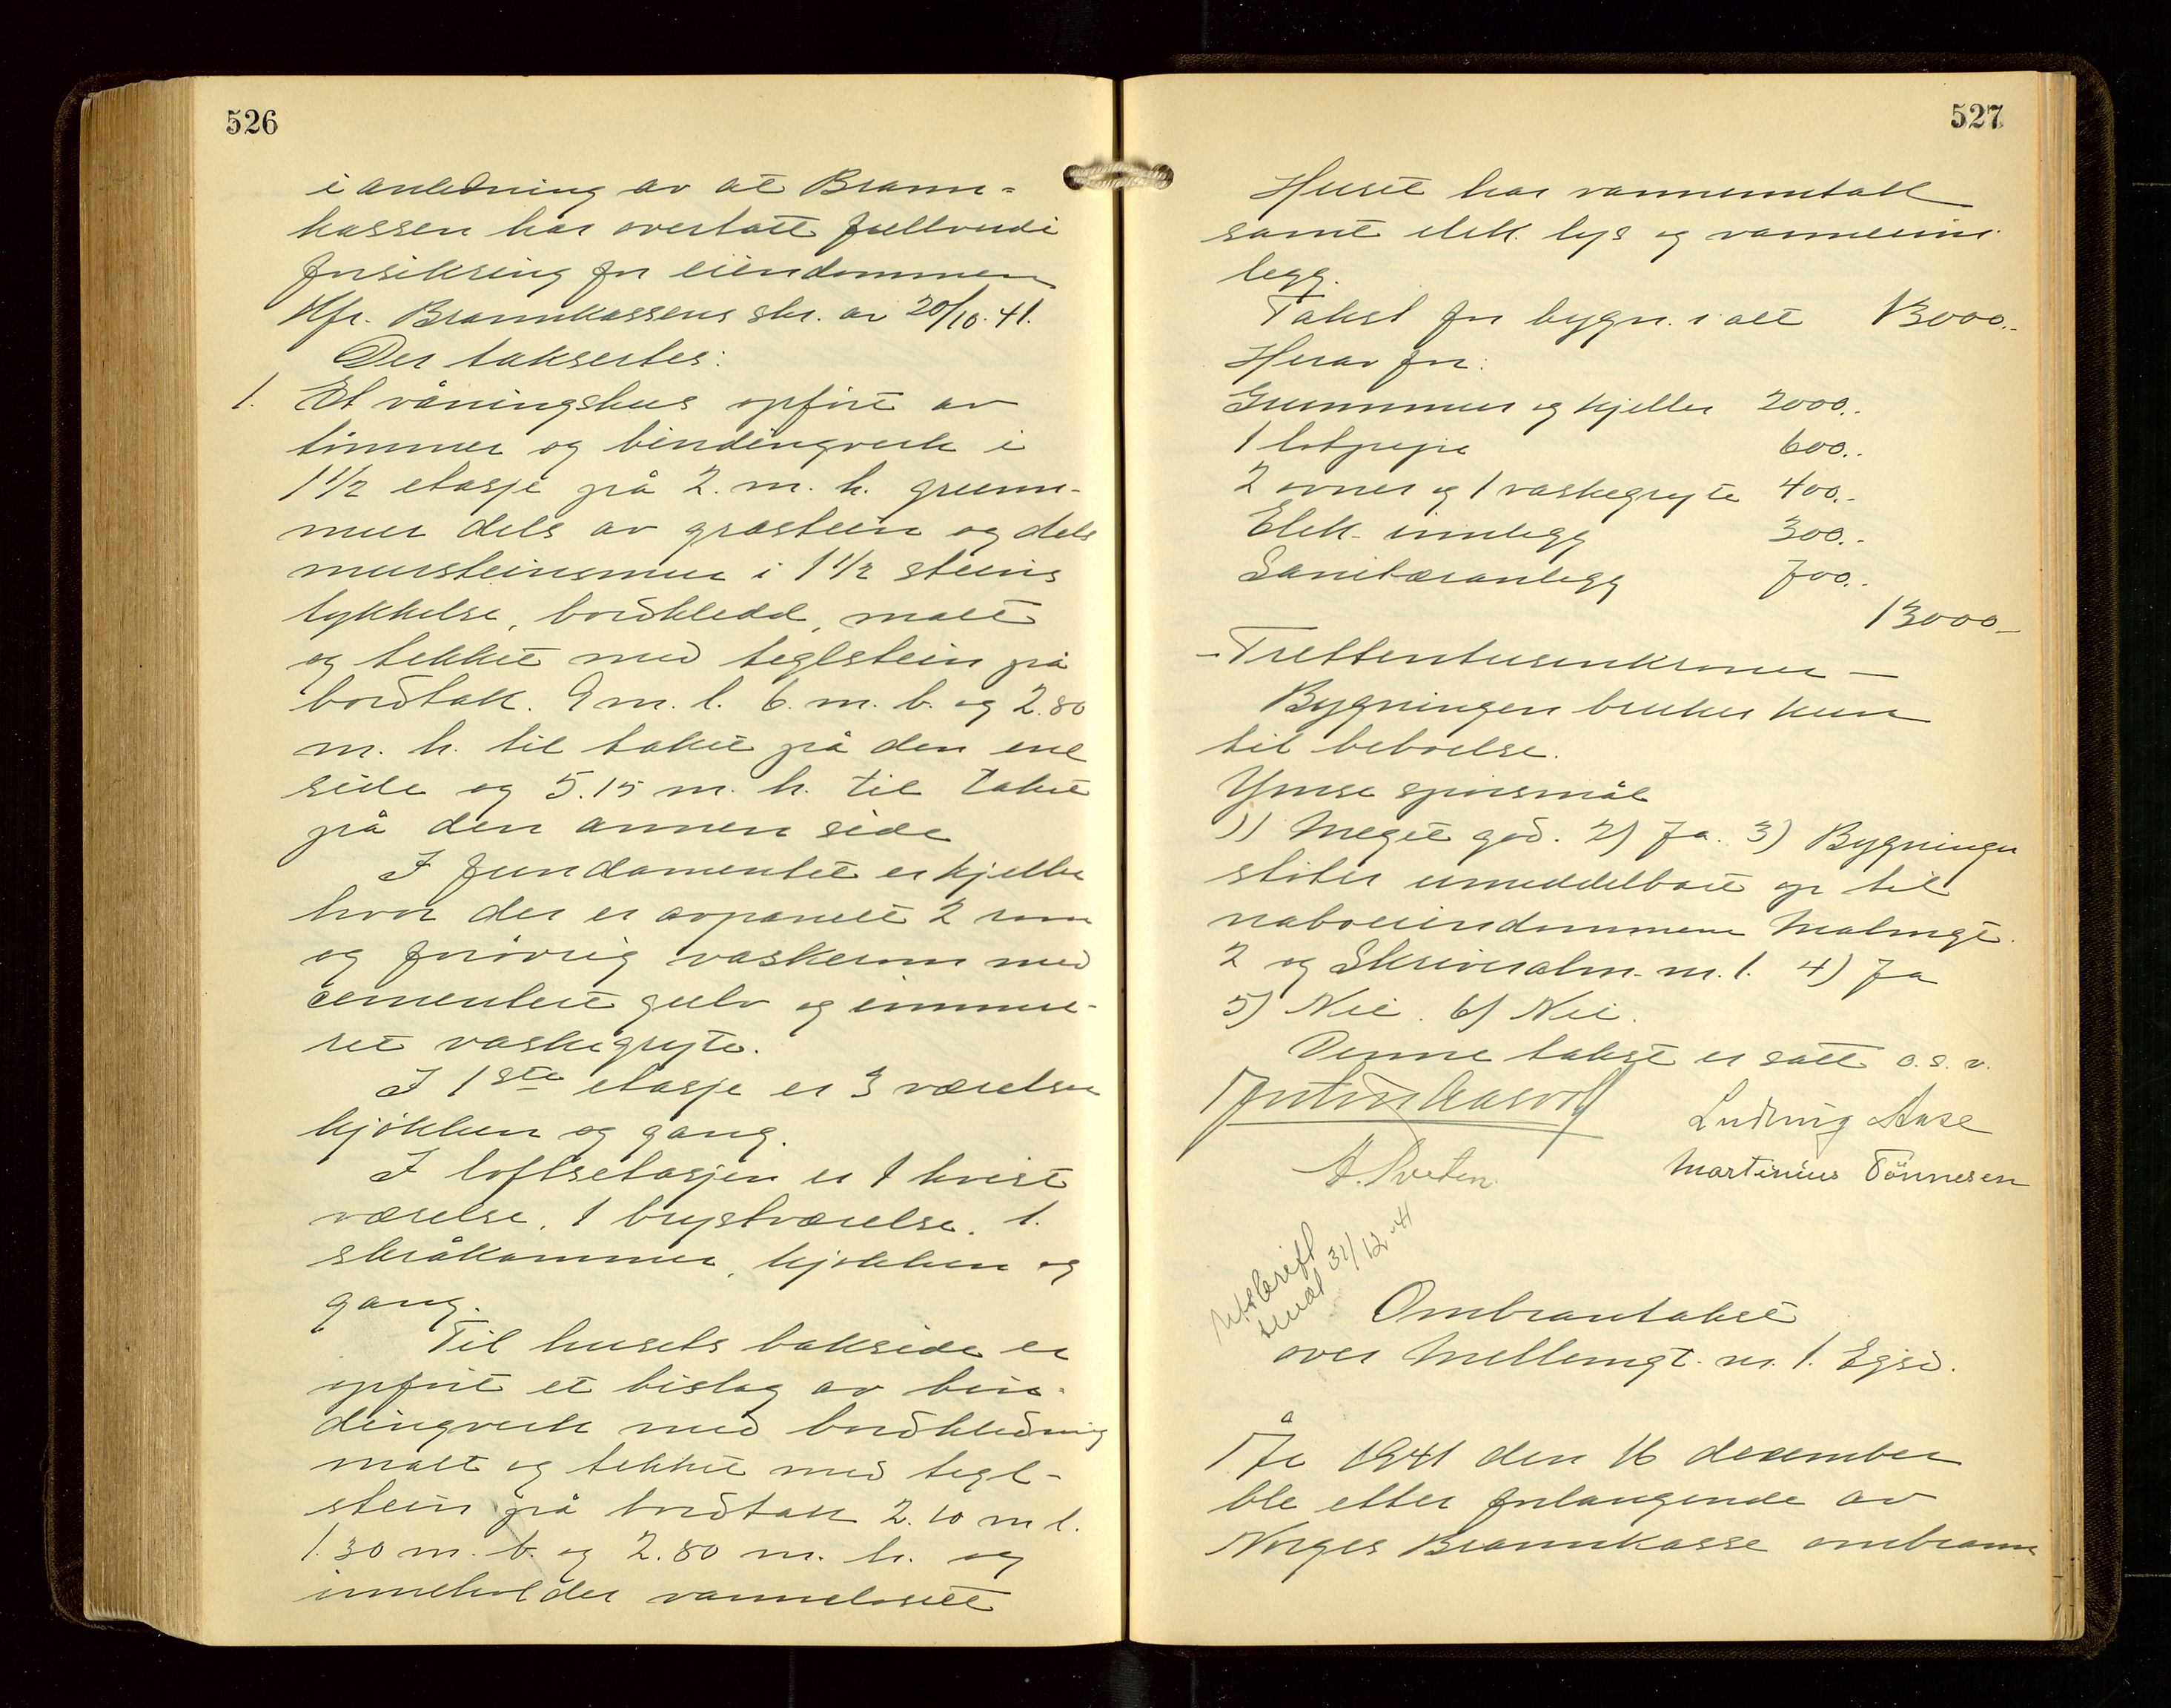 526
i anledning av at Brann-
kassen har overtatt fullverdi
forsikring for eiendommen
Kfr. Brannkassens skr. av 20/10.41.
Der taksertes:
1. Et våningshus opført av
tømmer og bindingverk i
1 1/2 etasje på 2. m. h. grunn-
mur dels av gråstein og dels
mursteinsmur i 1 1/2 steins
tykkelse, bordkledd, malt
og tekket med teglstein på
bordtak. 9 m. l. 6. m. b. og 2.80
m. h. til taket på den ene
side og 5.15 m. h. til taket
på den annen side
I fundamentet er kjeller
hvor der er avpanelt 2 rom
og forøvrig vaskerom med
cementert gulv og innmu-
ret vaskegryte.
I 1ste etasje er 3 værelser
kjøkken og gang.
I loftsetasjen er 1 kvist
værelse, 1 brystværelse. 1.
skråkammer, kjøkken og
gang.
Til husets bakside er
opført et bislag av bin-
dingverk med bordkledning
malt og tekket med tegl-
stein på bordtak 2.10 m l.
1.30 m. b. og 2.80 m. h. og
inneholder vannklosett
527
Huset har vanninntak
samt elek. lys og varmeinn-
legg.
Takst for bygn. i alt 13000.-
Herav for:
Grunnmur og kjeller 2000.-
1 løtpipe 600.-
2 ovner og 1 vaskegryte 400.-
Elek. innlegg 300.-
Sanitæranlegg 700.-
13000.-
- Trettentusenkroner -
Bygningen brukes kun
til beboelse.
Ymse spørsmål
1) Meget god. 2) Ja. 3) Bygningen
støter umiddelbart op til
naboeiendommene Malmgt.
2 og Skriveralm. nr. 1. 4) Ja
5) Nei. 6) Nei.
Denne takst er satt o.s.v.
Ludvig Aase
Martinius Tönnesen
Utskrift
sendt 31/12-41
Ombrantakst
over Mellemgt. nr. 1. Egsd.
År 1941 den 16 desember
ble etter forlangende av
Norges Brannkasse ombrann